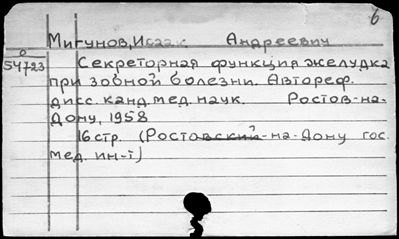 б
Мигунов, Исаак Андреевич
0
54723
Секреторная функция желудка
при зобной болезни. Автореф.
дисс. канд. мед. наук. Ростов-на-
Дону, 1958
16 стр. (Ростовский-на-Дону гос.
мед. ин-т)